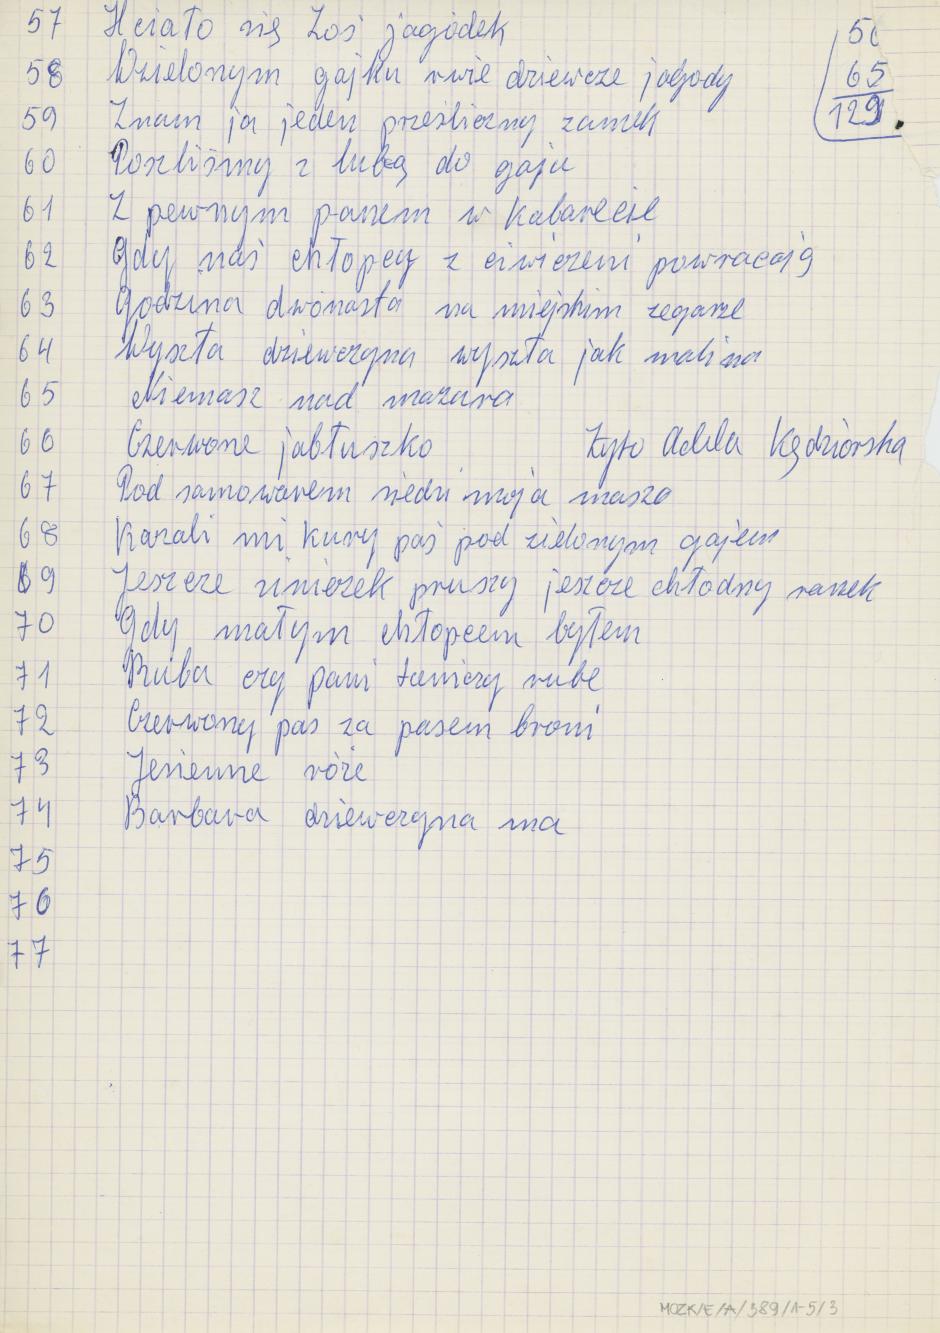 57 Hciało się Zoś jagódek
58 Wzielonym gajku rwie dziewcze jagody
59 Znam ja jeden prześliczny zamek
60 Poszliśmy z lubą do gaju
61 Z pewnym panem w kabarecie
62 Gdy naś chłopcy z ciwiczeni powracają
63 Godzina dwónasta na miejskim zegarze
64 Wyszła dziewczyna wyszła jak malina
65 Niemasz nad mazura
66 Czerwone jabłuszko Zyto Adela Kędziorska
67 Pod samowarem siedzi moja masza
68 Kazali mi kury paś pod zielonym gajem
69 Jeszcze zimiczek pruszy jeszcze chłodny ranek
70 Gdy małym chłopcem byłem
71 Ruba czy pani tańiczy rube
72 Czerwony pas za pasem broni
73 Jesienne róże
74 Barbara dziewczyna ma
75
76
77
65
129
MOZK/E/A/389/1-5/3